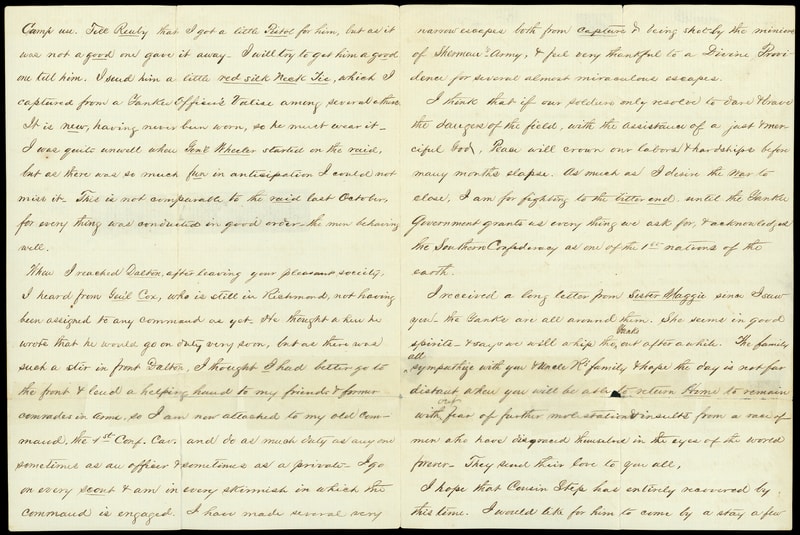 Camp use. Tell Reuby that I got a little Pistol for him, but as it
was not a good one gave it away. I will try to get him a good
one till him. I send him a little red silk Neck Tie, which I
captured from a Yankee Officer's Valise among several others
It is new, having never been worn, so he must wear it—
I was quite unwell when Gen'l Wheeler started on the raid,
but as there was so much fun in anticipation I could not
miss it— This is not comparable to the raid last October,
for every thing was conducted in good order— the men behaving
well.
When I reached Dalton, after leaving your pleasant society,
I heard from Gen'l Cox, who is still in Richmond, not having
been assigned to any command as yet. He thought when he
wrote that he would go on duty very soon, but as there was
such a stir in front Dalton, I thought I had better go to
the front & lend a helping hand to my friends & former
comrades in arms. so I am now attached to my old com-
mand, the 1st Conf. Cav. and do as much duty as any one
sometimes as an officer & sometimes as a private— I go
on every scout & am in every skirmish in which the
command is engaged. I have made several very
narrow escapes both from capture & being shot by the minions
of Sherman's Army, & feel very thankful to a Divine Provi
dence for several almost miraculous escapes.
I think that if our soldiers only resolve to dare & brave
the danger of the field, with the assistance of a just & mer-
ciful God, Peace will crown our labors & hardships before
many months elapse. As much as I desire the war to
close, I am for fighting to the bitter end. until the Yankee
Government grants us every thing we ask for, & acknowledges
the Southern Confederacy as one of the 1st nations of the
earth.
I received a long letter from Sister Maggie since I saw
you— the Yanks are all around them. She seems in good
spirits— & says we will whip the Yanks out after awhile. The family
all sympathize with you & Uncle R's family & hope the day is not far
distant when you will be able to return Home to remain
with out fear of further molestation & insults from a race of
men who have disgraced themselves in the eyes of the world
forever— They send their love to you all,
I hope that Cousin Step has entirely recovered by
this time. I would like for him to come by & stay a few